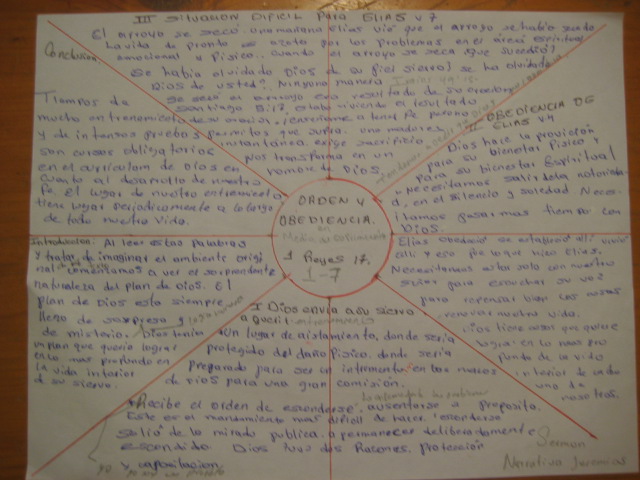 III SITUACION DIFICIL PARA ELIAS v 7
El arroyo se seco. una mañana Elias vió que el arroyo se habia secado
La vida de pronto es azotada por los problemas en el área espiritual
emocional y Fisico.. cuando el arroyo se seca ¿que sucedió?
Se habia olvidado Dios de su fiel siervo? se ha olvidado
Dios de usted? Ninguna manera Isaias 49:15.
Se seco el arroyo como resultado de su oracion
estaba viviendo el resultado
de su oracion
instantanea. exige sacrificio
nos transforma en un
hombre de Dios.
Conclusion:
Tiempos de
mucho entrenamiento
y de intensas pruebas
son cursos obligatorios
en el curriculum de Dios en
cuanto al desarrollo de nuestra
fe. El lugar de nuestro entrenamiento
tiene lugar periodicamente a lo largo
de toda nuestra vida.
II OBEDIENCIA DE
ELIAS v.4
Dios hace la provición
para su bienestar Fisico y
para su bienestar Espiritual
necesitamos salir de la notorieda-
d, en el silencio y soledad. Neces-
itamos pasar mas tiempo con
Dios.
ORDEN Y
OBEDIENCIA.
en
Medio del
1 Reyes 17,
1-7
Introduccion: Al leer estas palabras
y tratar de imaginar el ambiente origi
nal comenzamos a ver el sorprendente
naturaleza del plan de Dios. El
plan de Dios esta siempre
lleno de sorpresas y
de misterio. Dios tenia
un plan que queria lograr
en lo mas profundo en
la vida interior
de su siervo.
Elias obedeció se estableció alli vivió
alli y eso fue lo que hizo Elias.
Necesitamos estar solo con nuestro
señor para escuchar su voz
para repensar bien las cosas
renovar nuestra vida.
Dios tiene cosas que quiere
lograr en lo mas pro
fundo de la vida
interior de cada
uno de
nosotros.
I Dios envia a su siervo
a Querit
Un lugar de aislamiento, donde seria
protegido del daño Fisico. donde seria
Preparado para ser un intrumento en las manos
de Dios para una gran comisión.
Recibe el orden de esconderse, ausentarse a proposito.
Este es el mandamiento mas dificil de hacer "esconderse
salir" de la mirada publica. o permanecer deliberadamente
escondido Dios tuvo dos Razones. Protección
y capasitacion.
Sermon
Narrativo Jeremias